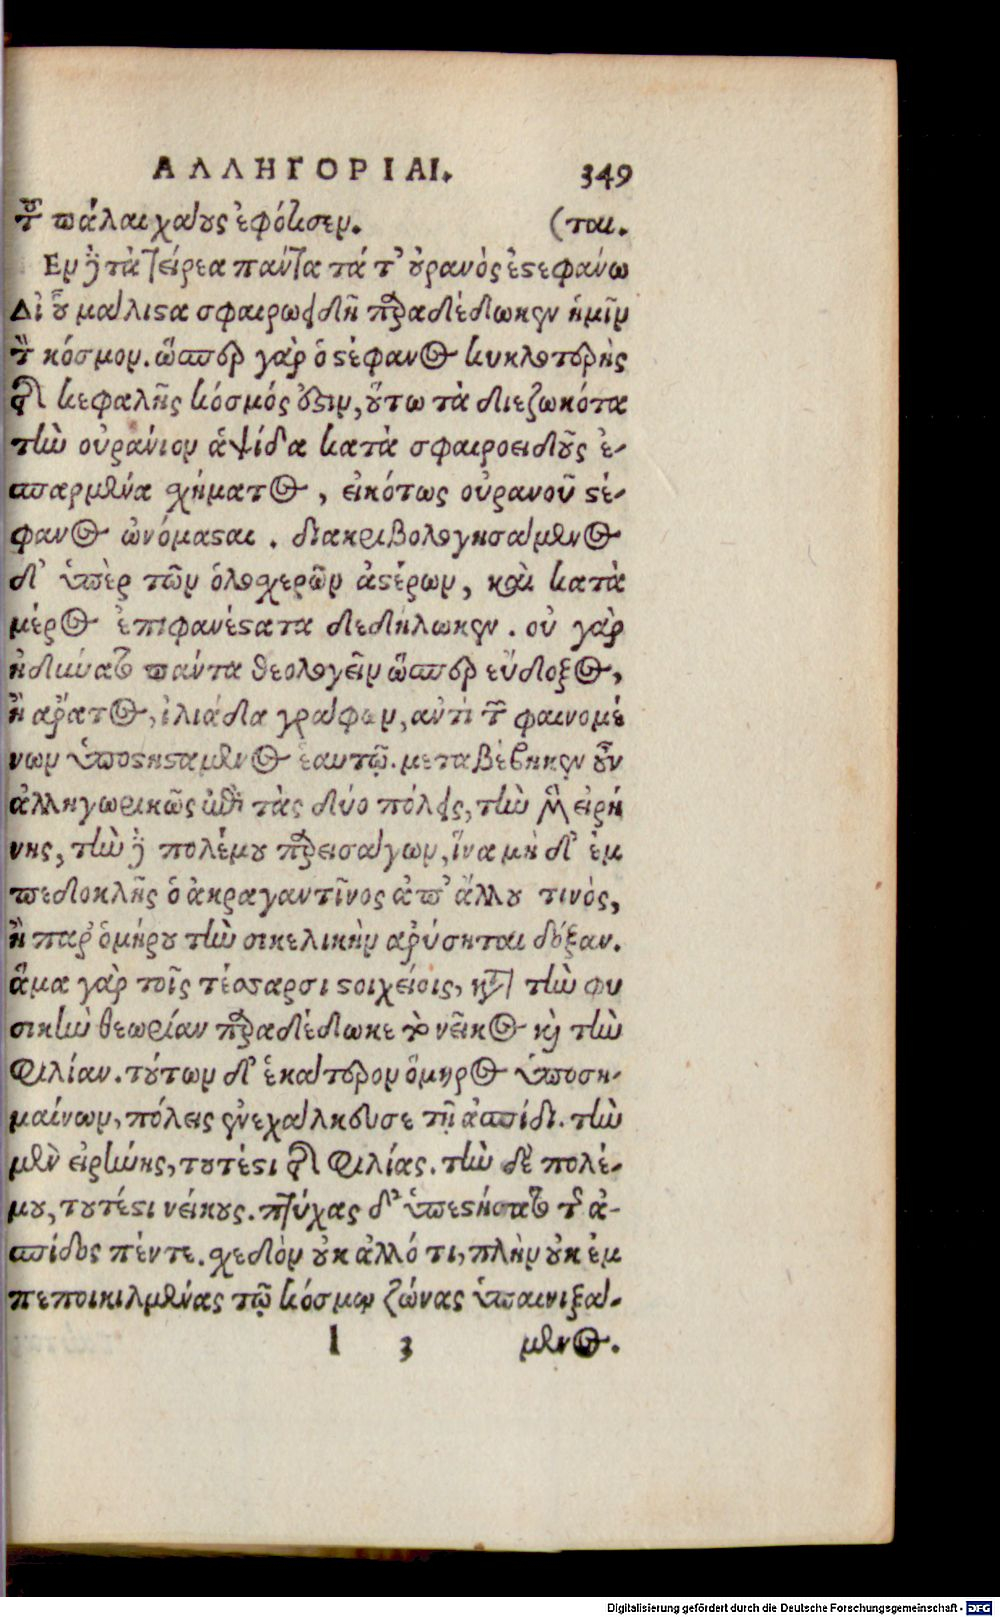 ΑΛΛΗΓΟΡΙΑΙ. 349
τοῦ πάλαι χάους ἐφώτισεν. (ται.
Ἐν δὲ τὰ τείρεα πάντα τά τ' οὐρανὸς ἐστεφάνω
Δι' οὗ μάλιστα σφαιρωειδῆ παραδέδωκεν ἡμῖν
τὸν κόσμον. ὥσπερ γὰρ ὁ στέφανος κυκλοτερὴς
τῆς κεφαλῆς κόσμός ἐστιν, οὕτω τὰ διεζωκότα
τὴν οὐράνιον ἁψίδα κατὰ σφαιροειδοῦς ἐ-
σπαρμένα σχήματος, εἰκότως οὐρανοῦ στέ-
φανος ὠνόμασται. διακριβολογησάμενος
δ' ὑπὲρ τῶν ὁλοσχερῶν ἀστέρων, καὶ κατὰ
μέρος ἐπιφανέστατα δεδήλωκεν. οὐ γὰρ
ἠδύνατο πάντα θεολογεῖν ὥσπερ εὔδοξος,
ἢ ἄρατος, ἰλιάδα γράφειν, ἀντὶ τῶν φαινομέ
νων ὑποστησάμενος ἑαυτῷ. μεταβέβηκεν οὖν
ἀλληγορικῶς ἐπὶ τὰς δύο πόλεις, τὴν μὲν εἰρή
νης, τὴν δὲ πολέμου παρεισάγων, ἵνα μὴ δ' ἐμ
πεδοκλῆς ὁ ἀκραγαντῖνος ἀπ' ἄλλου τινὸς,
ἢ παρ' ὁμήρου τὴν σικελικὴν ἀρύσηται δόξαν.
ἅμα γὰρ τοῖς τέσσαρσι στοιχείοις, κατὰ τὴν φυ
σικὴν θεωρίαν παραδέδωκε τὸ νεῖκος καὶ τὴν
φιλίαν. τούτων δ' ἑκάτερον ὅμηρος ὑποση-
μαίνων, πόλεις ἐνεχάλκευσε τῇ ἀσπίδι. τὴν
μὲν εἰρήνης, τουτέστι τῆς φιλίας. τὴν δὲ πολέ-
μου, τουτέστι νείκους. πτύχας δ' ὑπεστήσατο τῆς ἀ-
σπίδος πέντε. σχεδὸν οὐκ ἄλλό τι, πλὴν οὐκ ἐμ
πεποικιλμένας τῷ κόσμῳ ζώνας ὑπαινιξά-
l 3 μενος.
Digitalisierung gefördert durch die Deutsche Forschungsgemeinschaft - DFG